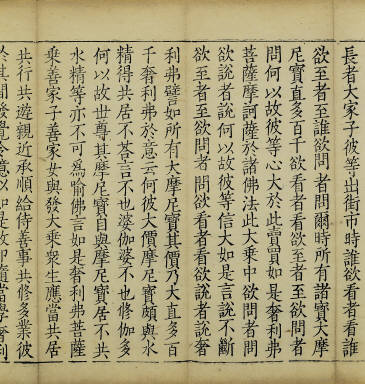 長者大家子彼等出街市時誰欲看者看誰
欲至者至誰欲問者問爾時所有諸寶大摩
尼寶直多百千欲看者看欲至者至欲問者
問何以故彼等心大於此賣買如是奢利弗
菩薩摩訶薩於諸佛法此大乘中欲問者問
欲說者說何以故彼等信大如是言說不斷
欲至者至欲問者問欲看者看欲說者說奢
利弗譬如所有大摩尼寶其價乃大直多百
千奢利弗於意云何彼大價摩尼寶頗與水
精得共居不荅言不也婆伽婆不也修伽多
何以故世尊其摩尼寶自與摩尼寶居不共
水精等亦不可為喻佛言如是奢利弗菩薩
乘善家子善家女與發大乘衆生應當共居
共行共遊親近承順給侍善事共修多業彼
於其間發覺